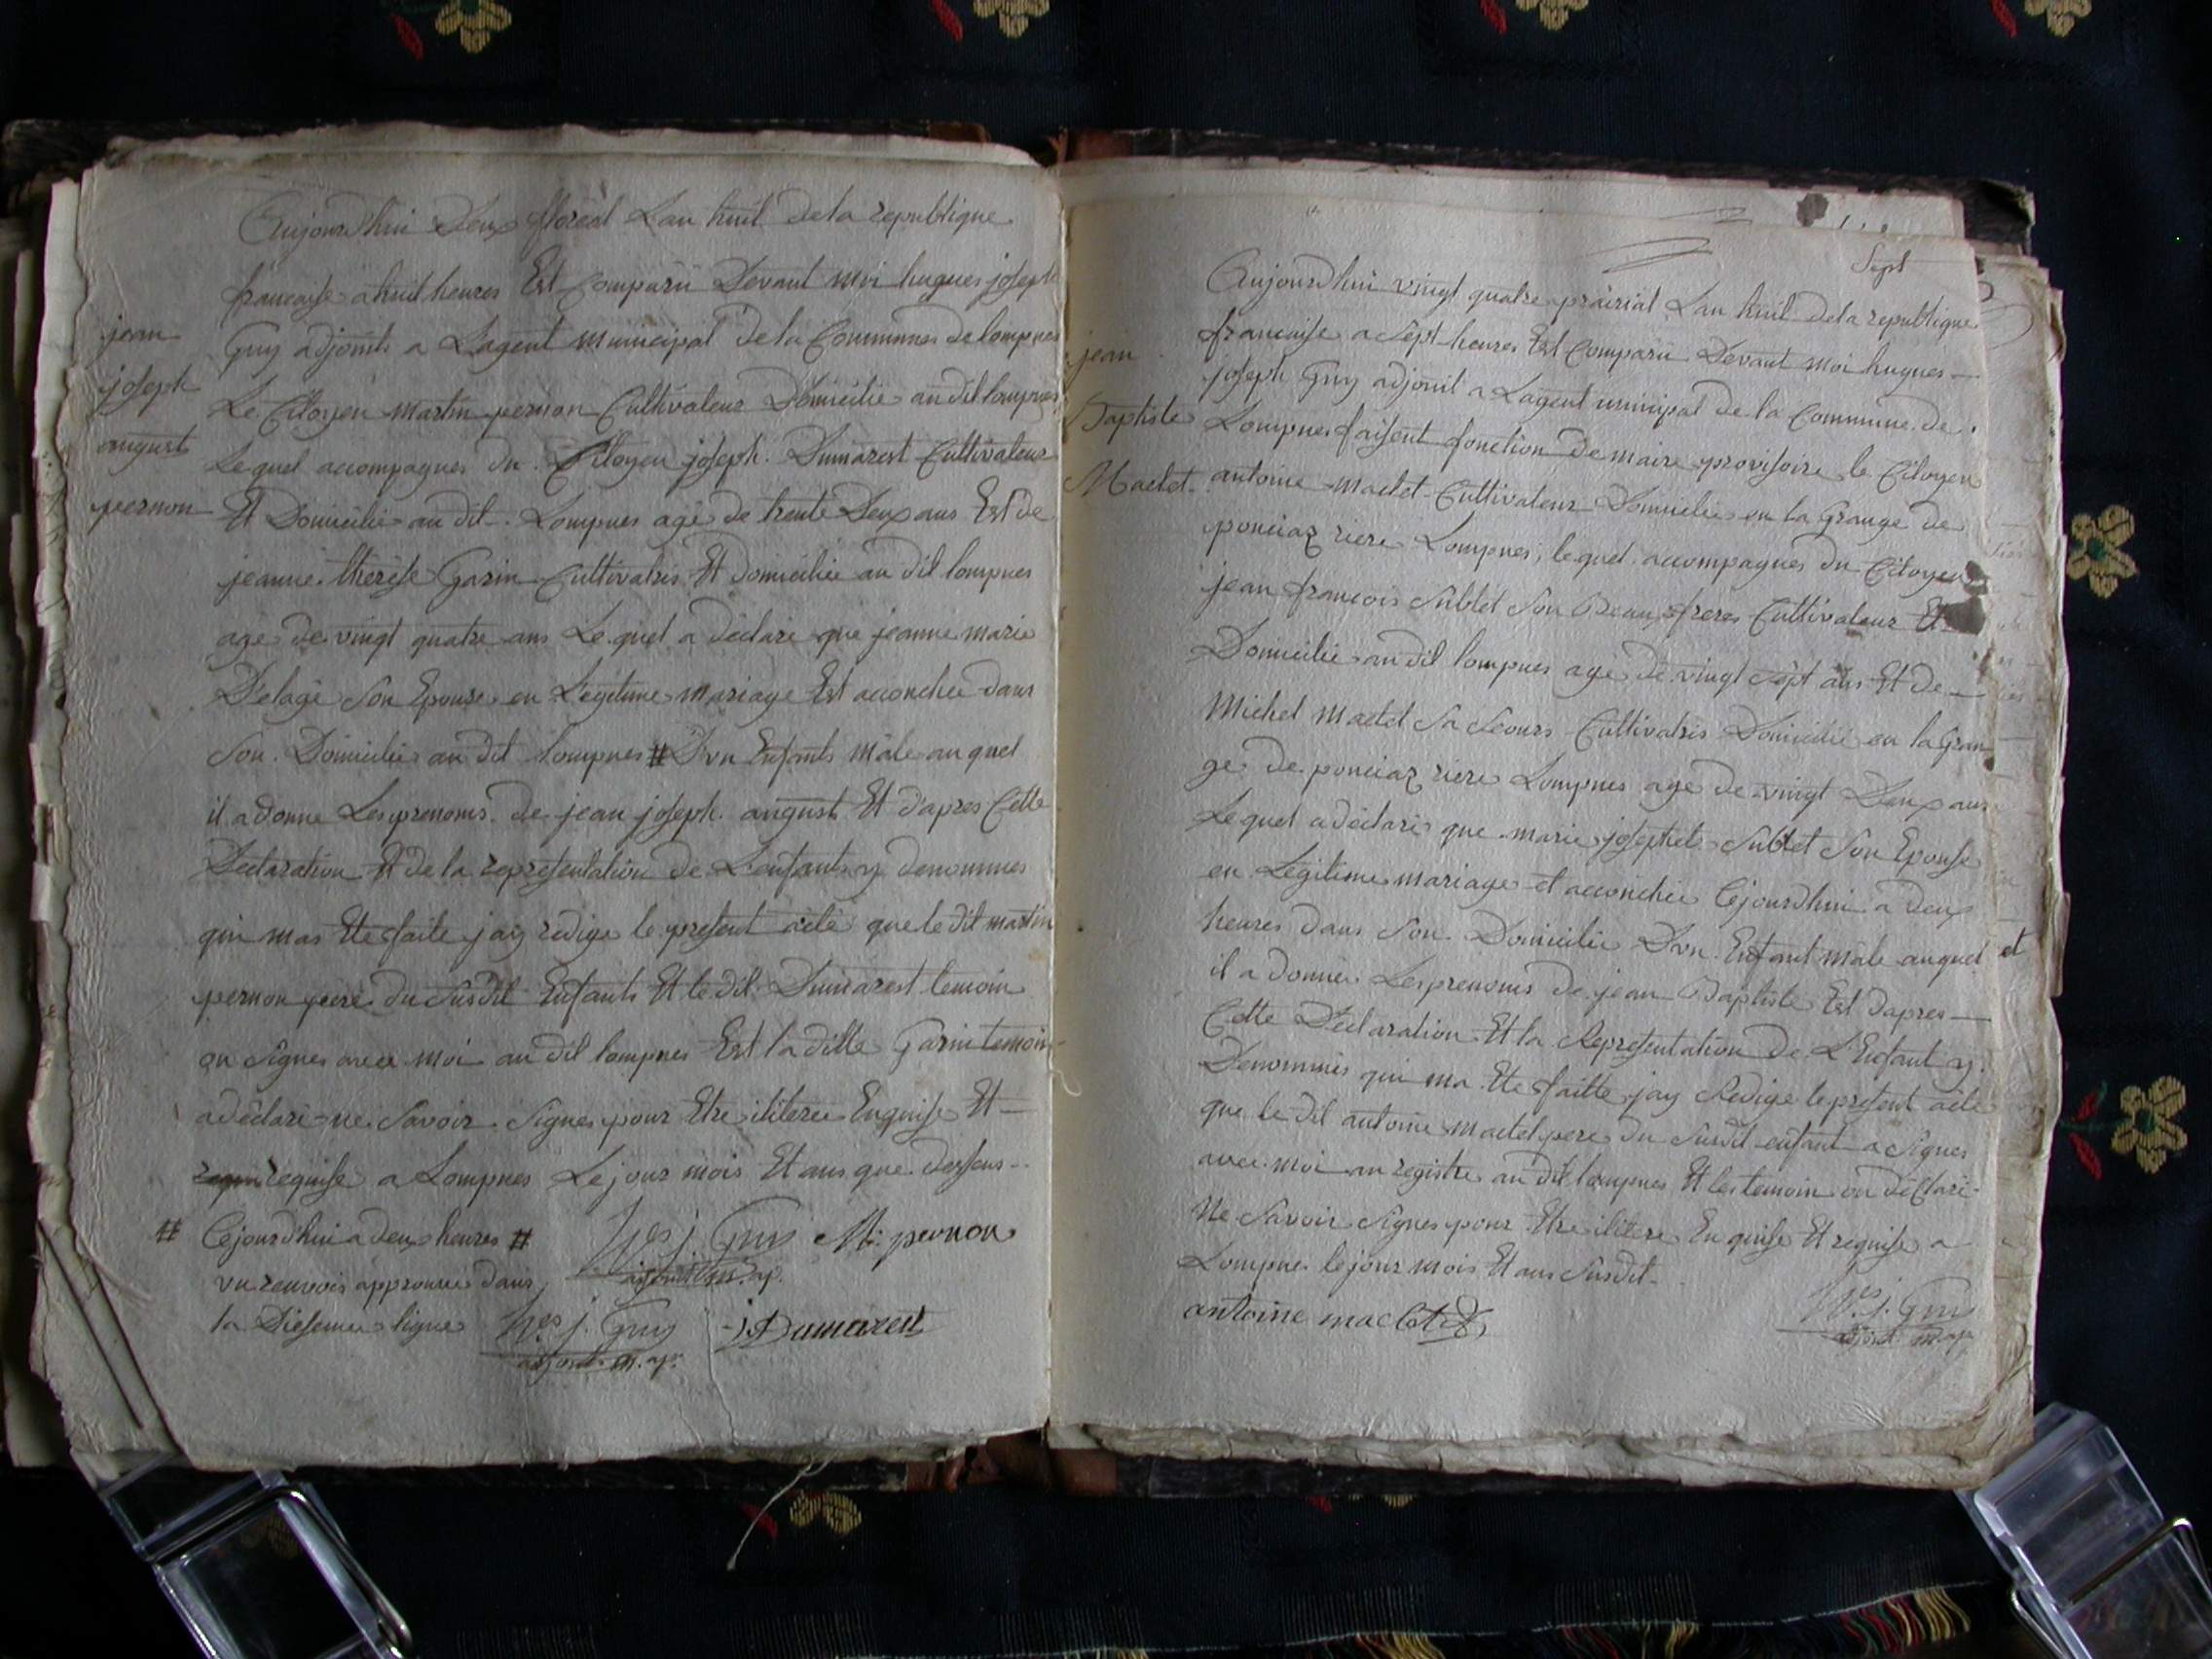 Aujourdhui Deux floreal Lan huit dela republique
francaise a huit heures Est Comparu Devant moi hugues joseph
Guy adjoint a Lagent municipal de la Commune de lompnes
Le Citoyen martin pernon Cultivateur Domicilie au dit lompnes
Le quel accompagnes du Citoyen joseph Dumarest Cultivateur
Et Domicilie au dit Lompnes age de trente Deux ans Est de
jeanne therese Garin Cultivatris Et domicilie au dit lompnes
age de vingt quatre ans Le quel a declare que jeanne marie
Delage Son Epouse en Legitime mariage Est accouchee dans
Son Domicilie au dit lompnes # D'vn Enfants mâle au quel
il a donne Les prenoms de jean joseph august Et d'apres Cette
Declaration Et de la representation de L'enfants y denommes
qui mas Ete faite jay redige le present acte que le dit martin
pernon pere du Susdit Enfants Et le dit Dumarest temoin
on Signes avec moi au dit lompnes Est la ditte Garin temoin
a declare ne Savoir Signes pour Etre iliteree Enquise Et
requi requise a Lompnes Le jour mois Et ans que dessus
# Cejourdhui a deux heures #
vn renvois approuve dans
la Dixieme ligne
hes j. Guy
adjoint m. ap.
M. pernon
hes j. Guy
adjoint m. ap.
j Dumarest
jean
joseph
august
pernon
Sept
Aujourdhui vingt quatre prairial Lan huit dela republique
francaise a Sept heures Est Comparu Devant moi hugues
joseph Guy adjoint a Lagent municipal de la Commune de
Lompnes faisent fonction De maire provisoire le Citoyen
antoine maclet Cultivateur Domicilie en la Grange de
ponciaz riere Lompnes, lequel accompagnes du Citoyen
jean francois Sublet Son Beau frere Cultivateur Et
Domicilie au dit lompnes age de vingt Sept ans Et de
Michel maclet Sa Seours Cultivatris Domicilie en la Gran
ge de ponciaz riere Lompnes age de vingt Deux ans
Le quel a declare que marie josephte Sublet Son Epouse
en Legitime mariage et accouchee Cejourdhui a deux
heures dans Son Domicilie D'vn Enfant mâle auquel et
il a donne Les prenoms de jean Baptiste Est dapres
Cette Declaration Et la Representation de L'Enfant y
Denommes qui ma Ete faitte jay Redige le present acte
que le dit antoine maclet pere du Susdit enfant a Signes
avec moi au registre au dit lompnes Et les temoin on declare
Ne Savoir Signes pour Etre ilitere Enquise Et requise a
Lompnes le jour mois Et ans Susdit
antoine maclet
hes j. Guy
adjoint m. ap.
jean
Baptiste
Maclet